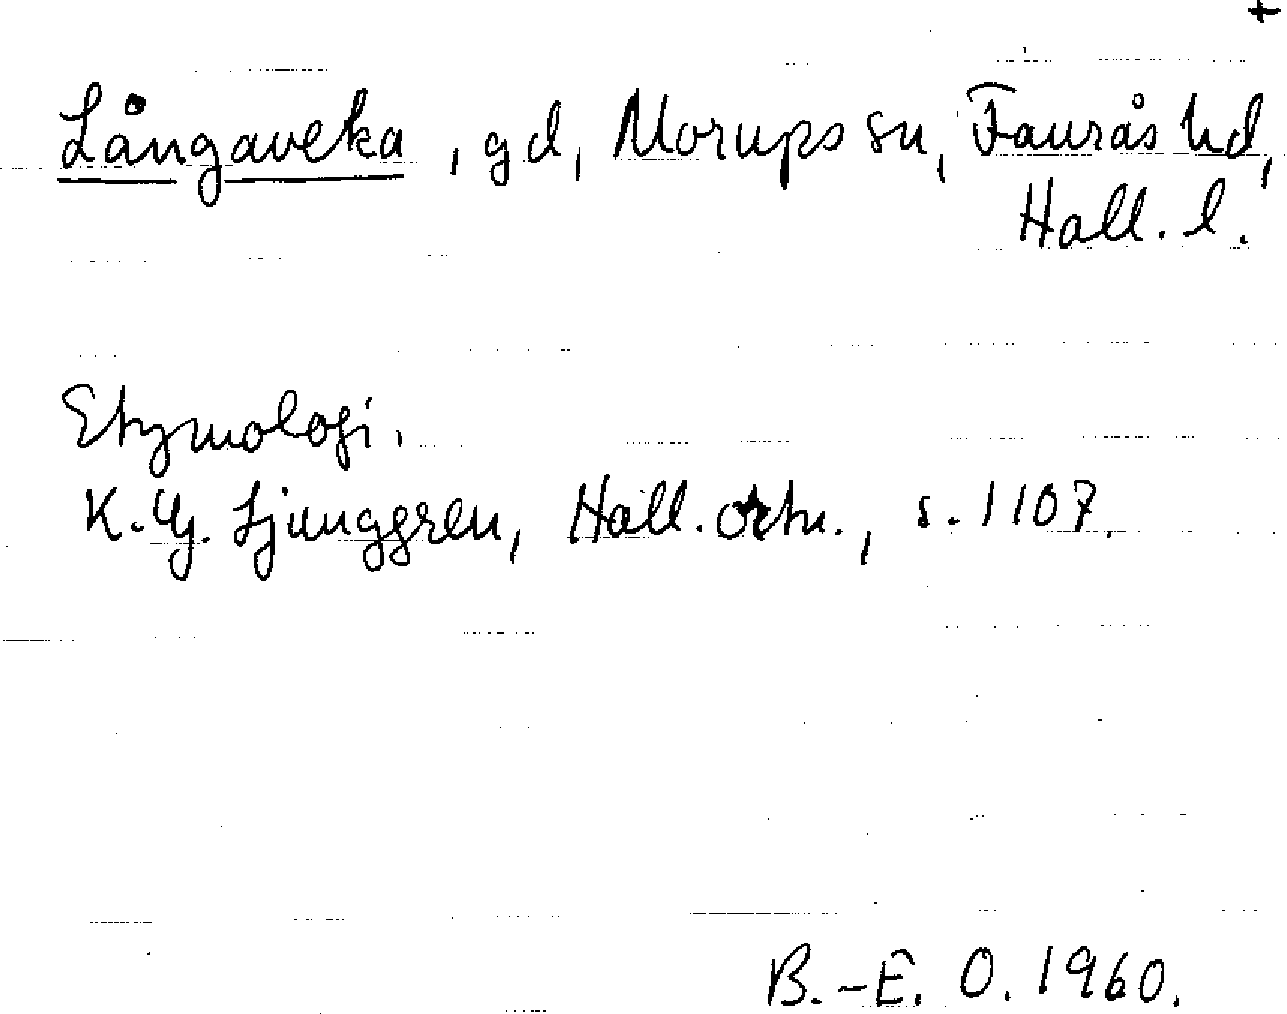 +
Långaveka, gd, Morups sn, Faurås hd,
Hall. l.
Etymologi.
K.G. Ljunggren, Hall. ortn., s. 1107.
B.-E. O. 1960.